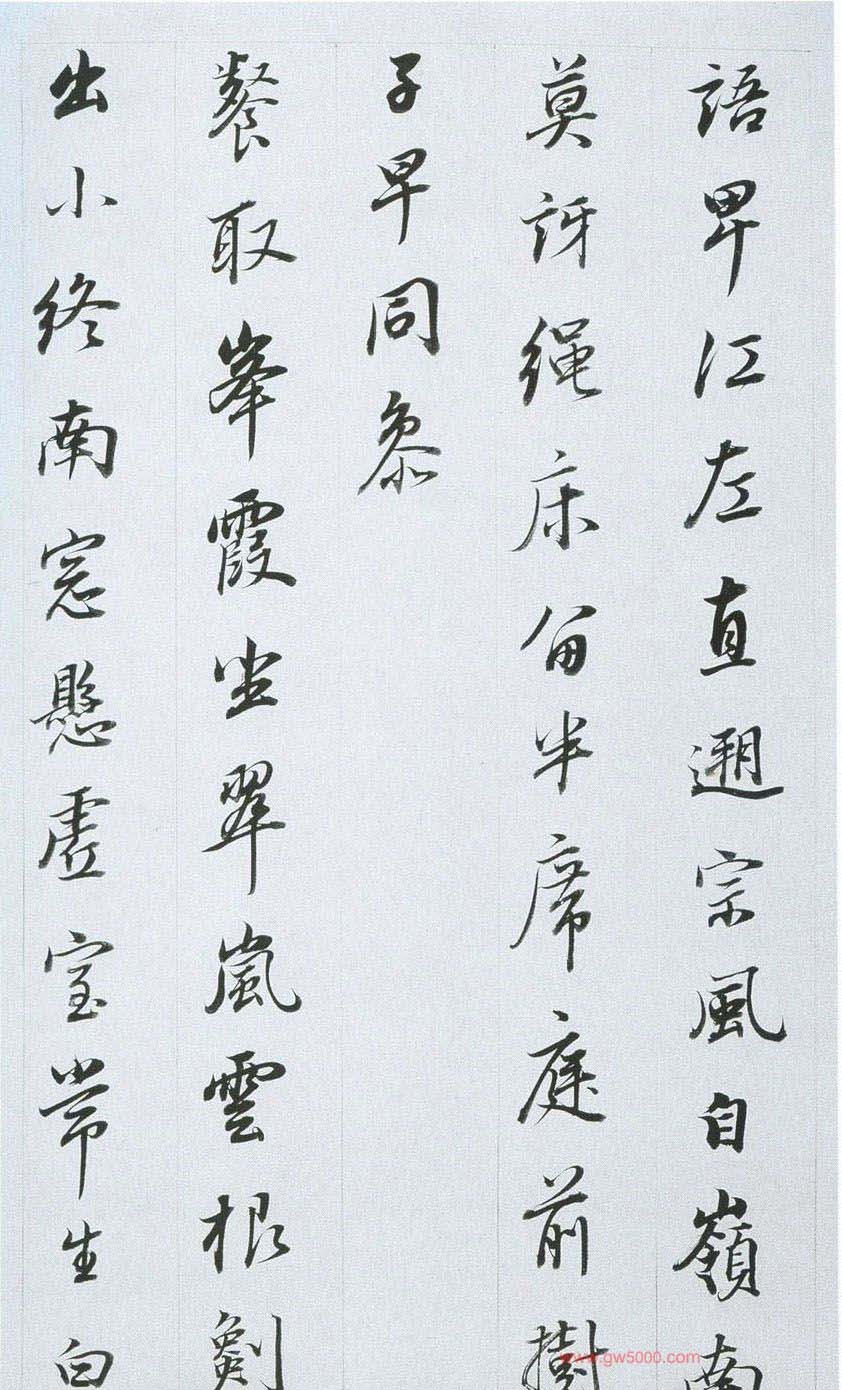 語卑江左直遡宗風自嶺南
莫訝繩床留半席庭前樹
子早同參
餐取峯霞坐翠嵐雲根劍
出小終南窓懸虛室常生白
www.gw5000.com